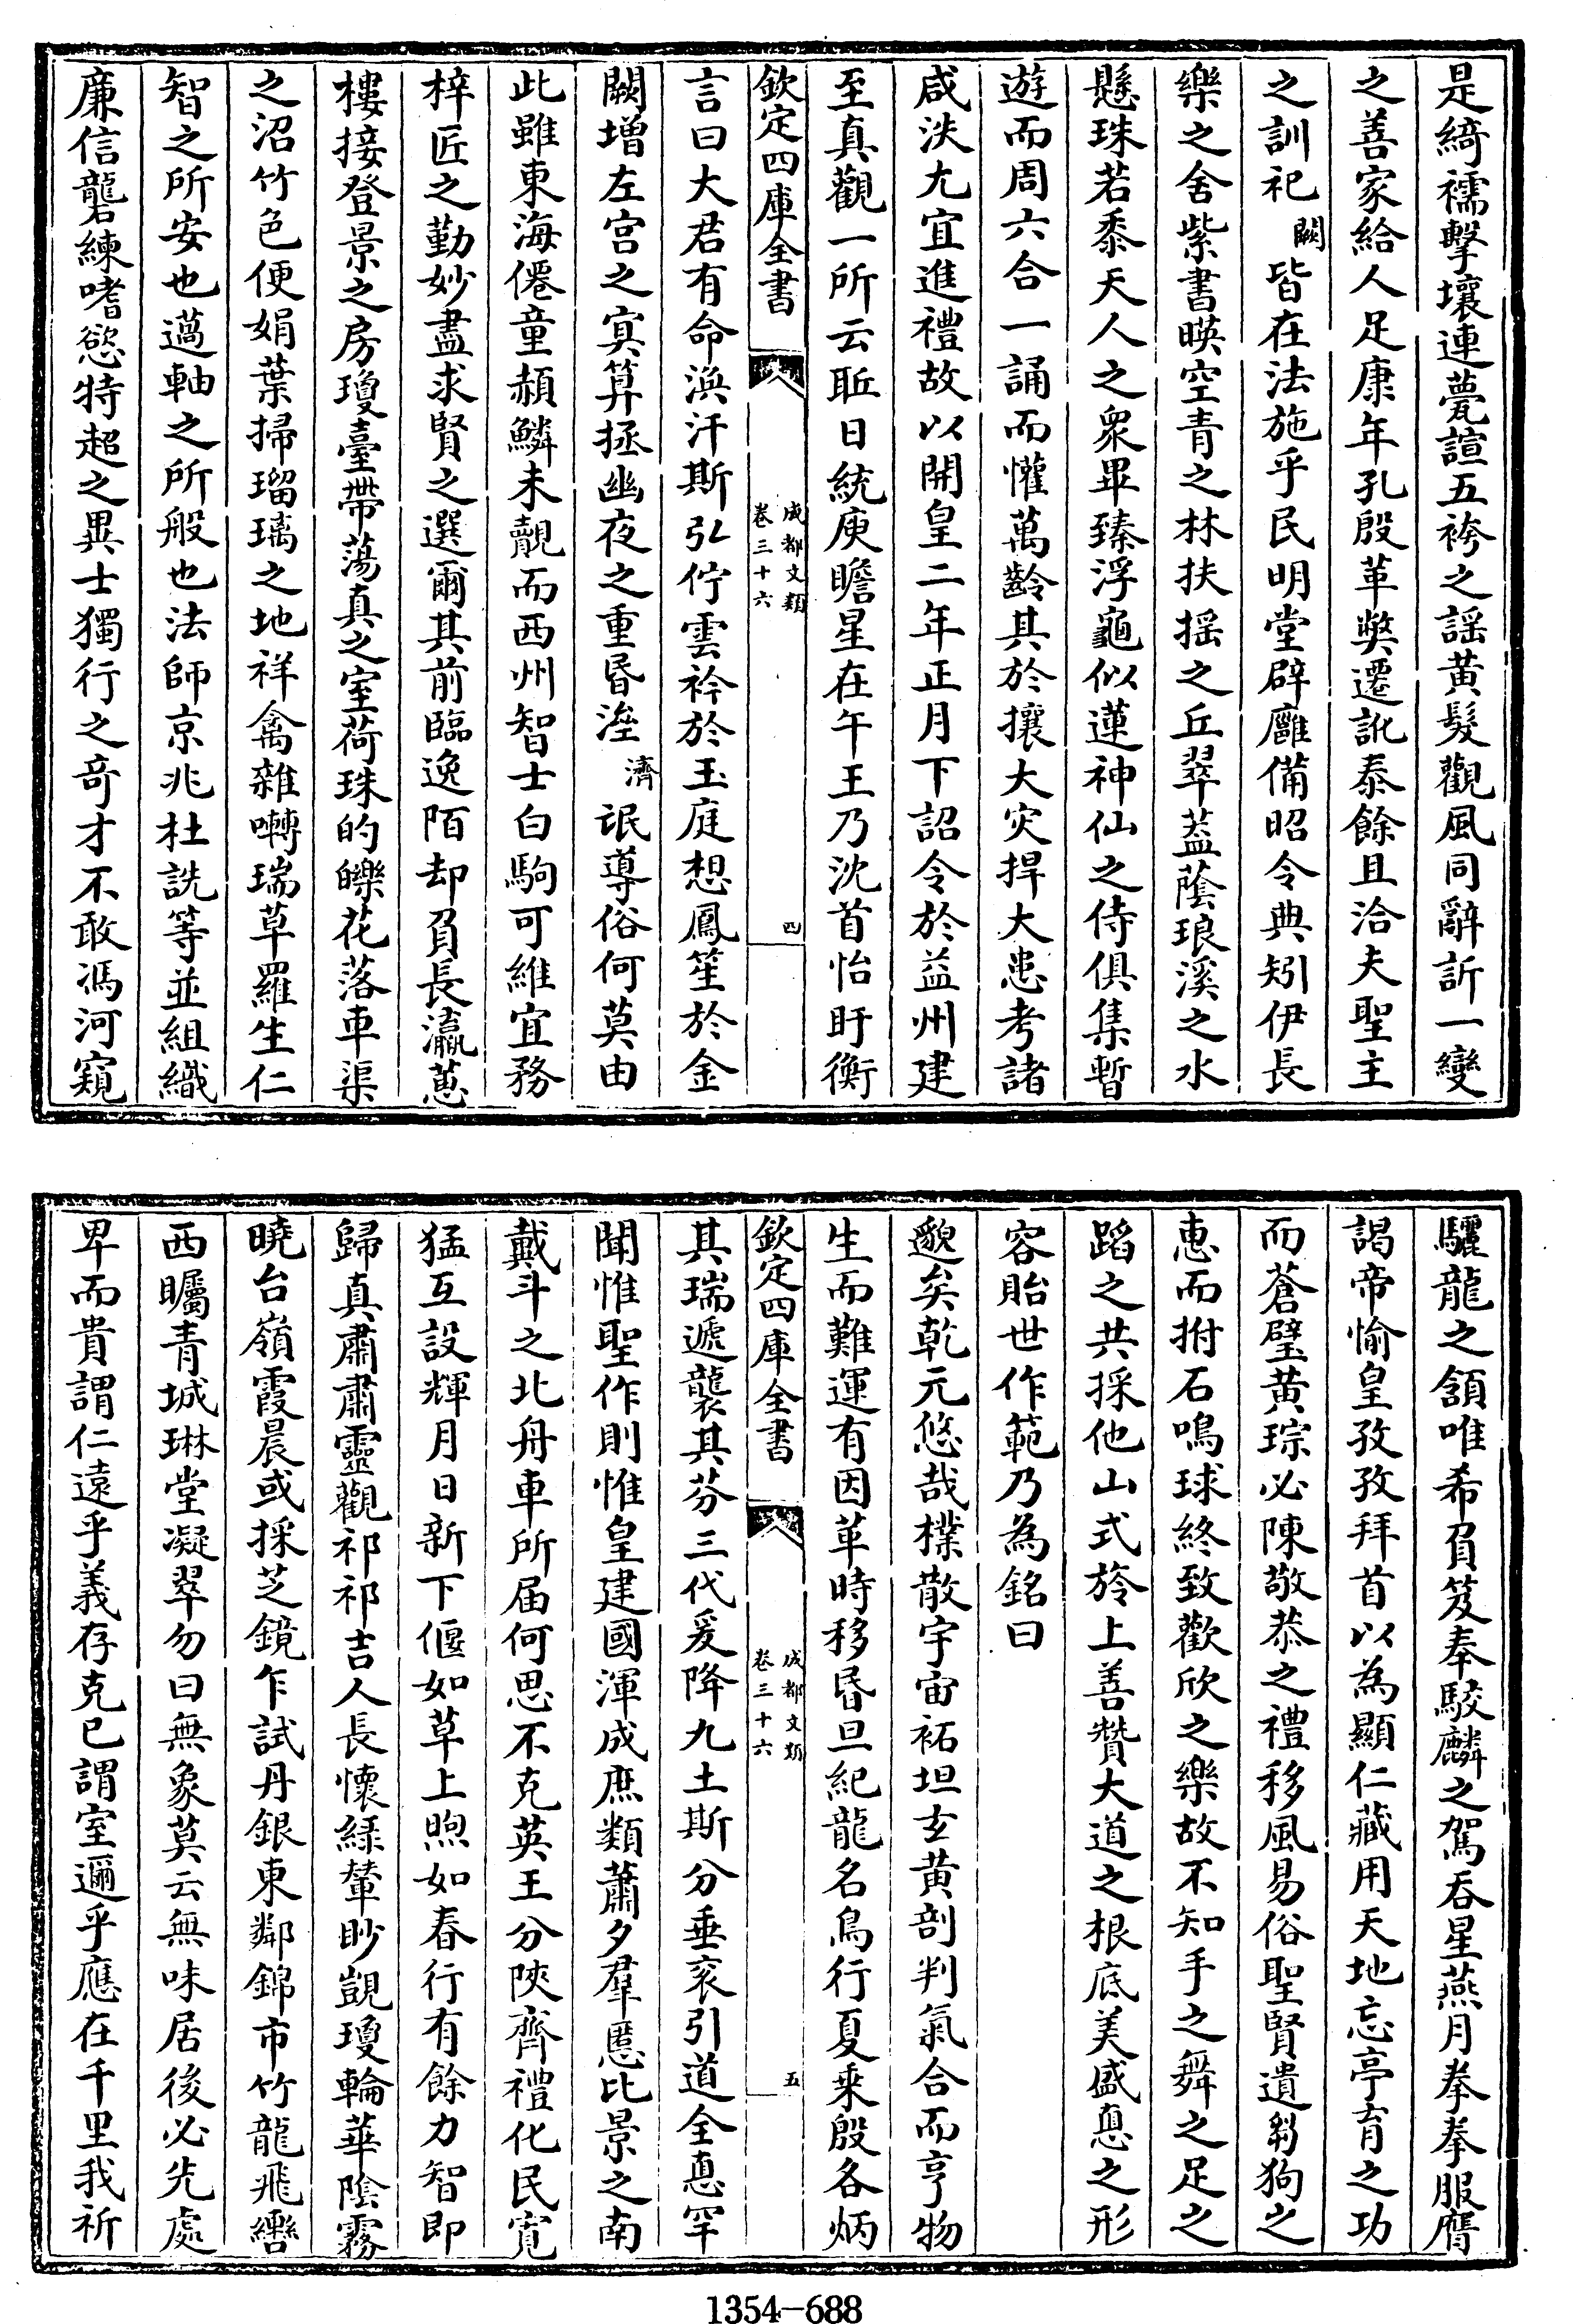 是綺襦擊壤連甍諠五袴之謡黄髮觀風同辭訢一變
之善家給人足康年孔殷革獘遷訛泰餘且洽夫聖主
之訓祀闕皆在法施乎民明堂辟廱備昭令典矧伊長
樂之舍紫書暎空青之林扶揺之丘翠葢蔭琅溪之水
懸珠若黍天人之衆畢臻浮龜似蓮神仙之侍俱集暫
遊而周六合一誦而懽萬齡其於攘大灾捍大患考諸
咸泆尤宜進禮故以開皇二年正月下詔令於益州建
至真觀一所云昄日統庚瞻星在午王乃沈首怡盱衡
欽定四庫全書
成都文類
卷三十六
四
言曰大君有命渙汗斯弘佇雲衿於玉庭想鳳笙於金
闕增左宫之寘算拯幽夜之重昬湰濟氓導俗何莫由
此雖東海僊童頳鱗未覿而西州智士白駒可維宜務
梓匠之勤妙盡求賢之選爾其前臨逸陌却負長瀛蔥
樓接登景之房瓊臺帶蕩真之室荷珠的皪花落車渠
之沼竹色便娟葉掃瑠璃之地祥禽雜囀瑞草羅生仁
智之所安也薖軸之所般也法師京兆杜詵等並組織
廉信礲練嗜慾特超之異士獨行之竒才不敢馮河窺
驪龍之頷唯希負笈奉駮麟之駕吞星燕月拳拳服膺
謁帝愉皇孜孜拜首以為顯仁藏用天地忘亭育之功
而蒼璧黄琮必陳敬恭之禮移風易俗聖賢遺芻狗之
惠而拊石鳴球終致歡欣之樂故不知手之舞之足之
蹈之共採他山式旍上善贊大道之根底美盛悳之形
容貽世作範乃為銘曰
邈矣乾元悠哉樸散宇宙袥坦𤣥黄剖判氣合而亨物
生而難運有因革時移昬旦紀龍名鳥行夏乗殷各炳
欽定四庫全書
成都文類
卷三十六
五
其瑞遞襲其芬三代爰降九土斯分垂衮引道全悳罕
聞惟聖作則惟皇建國渾成庶類蕭夕羣慝比景之南
戴斗之北舟車所届何思不克英王分陜齊禮化民寛
猛互設輝月日新下偃如草上煦如春行有餘力智即
歸真肅肅靈觀祁祁吉人長懷緑輦眇覬瓊輪華陰霧
曉台嶺霞晨或採芝鏡乍試丹銀東鄰錦市竹龍飛轡
西矚青城琳堂凝翠勿曰無象莫云無味居後必先處
卑而貴謂仁遠乎義存克已謂室邇乎應在千里我祈
1354-688